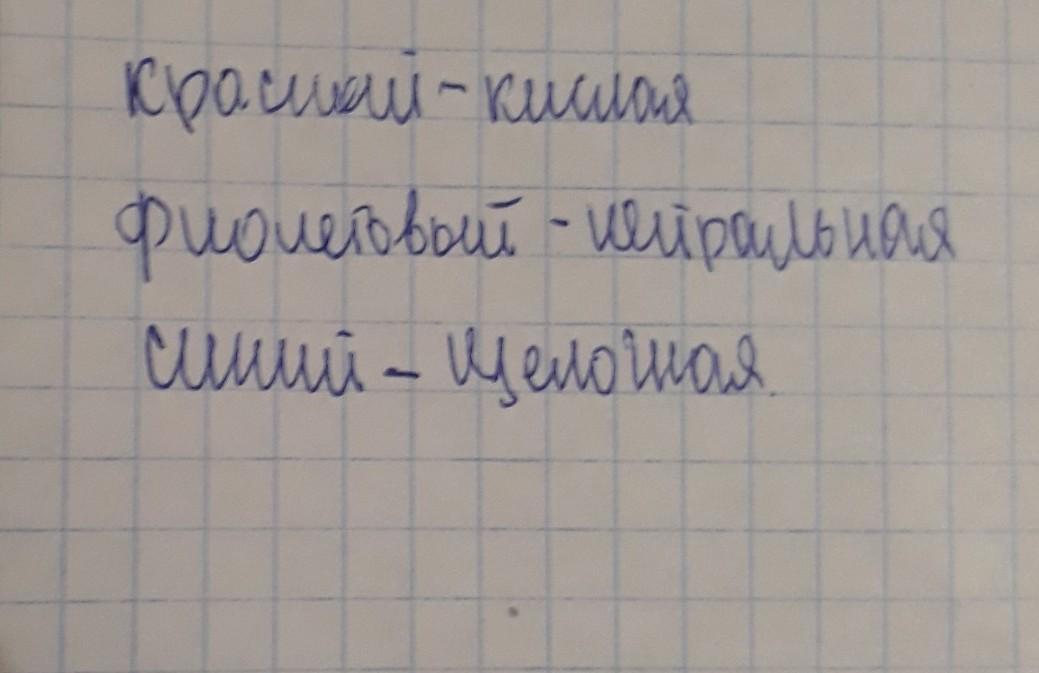 красный - кислая
фиолетовый - нейтральная
синий - щелочная